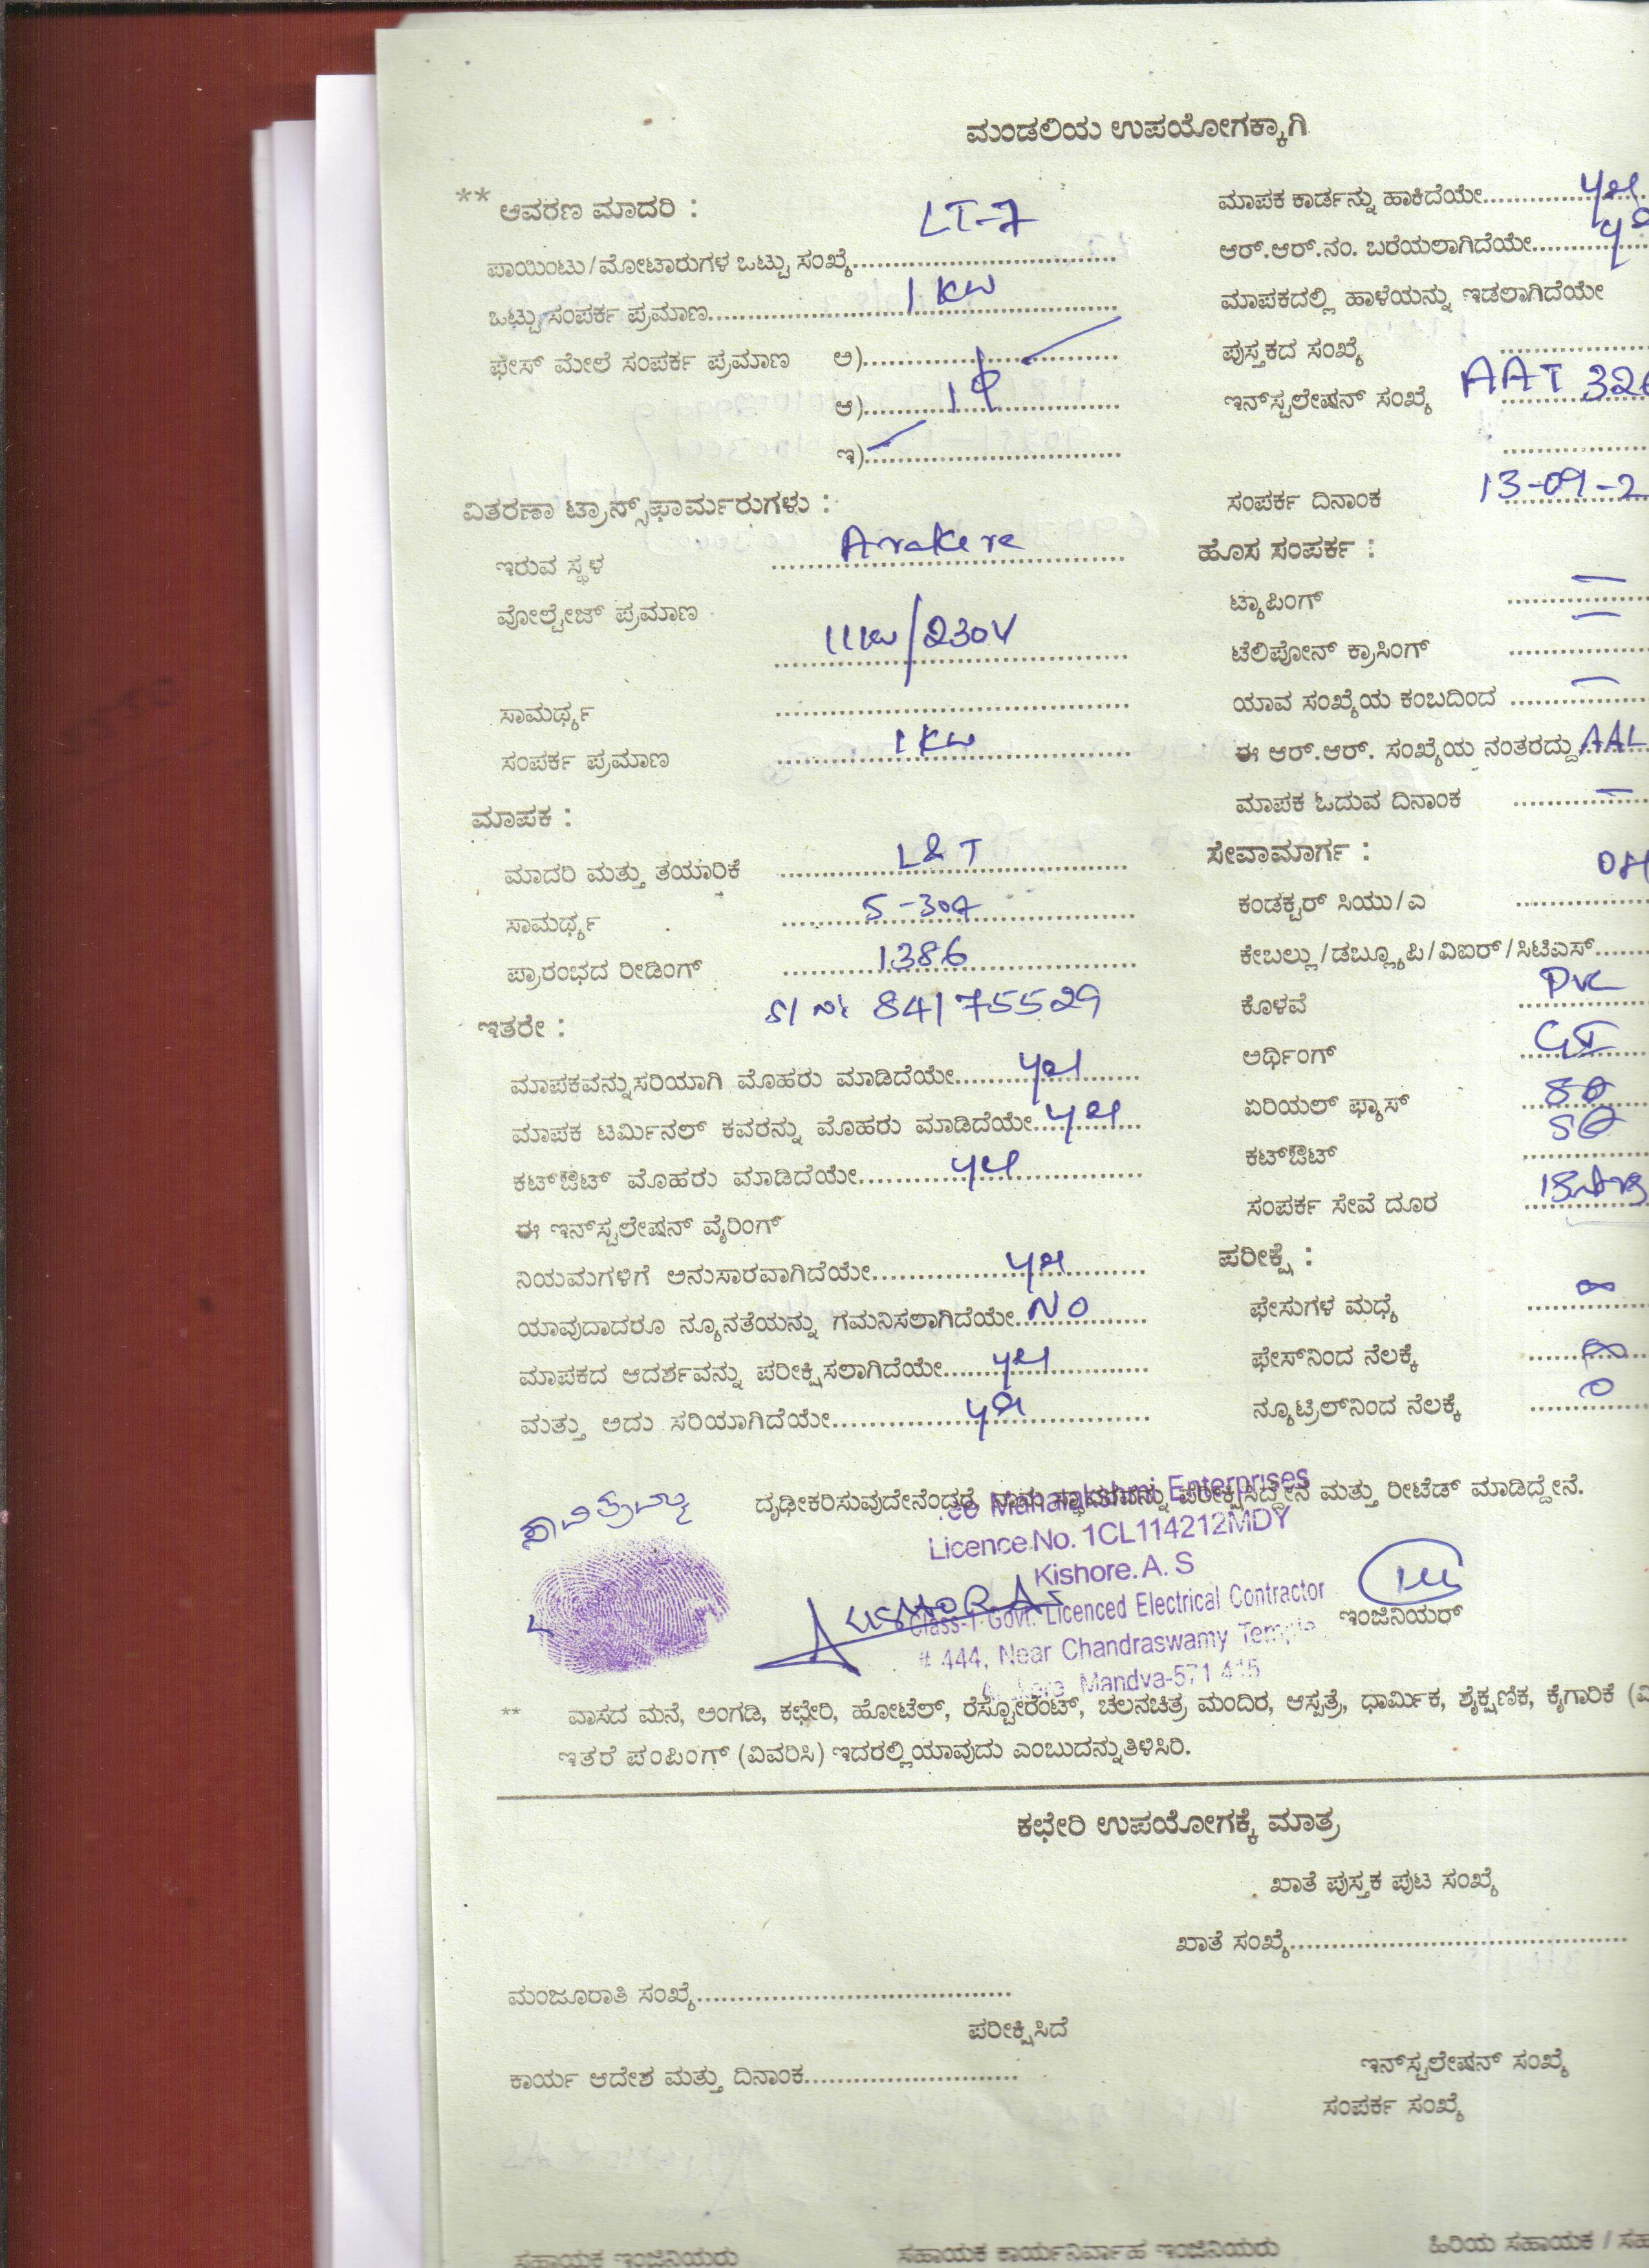 ಮಂಡಲಿಯ ಉಪಯೋಗಕ್ಕಾಗಿ
** ಆವರಣ ಮಾದರಿ : LT-7
ಪಾಯಿಂಟು/ಮೋಟಾರುಗಳ ಒಟ್ಟು ಸಂಖ್ಯೆ
ಒಟ್ಟು ಸಂಪರ್ಕ ಪ್ರಮಾಣ 1 KW
ಫೇಸ್ ಮೇಲೆ ಸಂಪರ್ಕ ಪ್ರಮಾಣ ಅ)
ಆ) 1φ
ಇ)
ವಿತರಣಾ ಟ್ರಾನ್ಸ್‌ಫಾರ್ಮರುಗಳು :
ಇರುವ ಸ್ಥಳ Arakere
ವೋಲ್ಟೇಜ್ ಪ್ರಮಾಣ
11KW/230V
ಸಾಮರ್ಥ್ಯ
ಸಂಪರ್ಕ ಪ್ರಮಾಣ 1 KW
ಮಾಪಕ :
ಮಾದರಿ ಮತ್ತು ತಯಾರಿಕೆ L&T
ಸಾಮರ್ಥ್ಯ 5-30A
ಪ್ರಾರಂಭದ ರೀಡಿಂಗ್ 1386
ಇತರೇ : Sl No 84175529
ಮಾಪಕವನ್ನು ಸರಿಯಾಗಿ ಮೊಹರು ಮಾಡಿದೆಯೇ yes
ಮಾಪಕ ಟರ್ಮಿನಲ್ ಕವರನ್ನು ಮೊಹರು ಮಾಡಿದೆಯೇ yes
ಕಟ್‌ಔಟ್ ಮೊಹರು ಮಾಡಿದೆಯೇ yes
ಈ ಇನ್‌ಸ್ಟಲೇಷನ್ ವೈರಿಂಗ್
ನಿಯಮಗಳಿಗೆ ಅನುಸಾರವಾಗಿದೆಯೇ yes
ಯಾವುದಾದರೂ ನ್ಯೂನತೆಯನ್ನು ಗಮನಿಸಲಾಗಿದೆಯೇ NO
ಮಾಪಕದ ಆದರ್ಶವನ್ನು ಪರೀಕ್ಷಿಸಲಾಗಿದೆಯೇ yes
ಮತ್ತು ಅದು ಸರಿಯಾಗಿದೆಯೇ yes
ಮಾಪಕ ಕಾರ್ಡನ್ನು ಹಾಕಿದೆಯೇ yes
ಆರ್.ಆರ್.ನಂ. ಬರೆಯಲಾಗಿದೆಯೇ
ಮಾಪಕದಲ್ಲಿ ಹಾಳೆಯನ್ನು ಇಡಲಾಗಿದೆಯೇ
ಪುಸ್ತಕದ ಸಂಖ್ಯೆ
ಇನ್‌ಸ್ಟಲೇಷನ್ ಸಂಖ್ಯೆ AAT 32
ಸಂಪರ್ಕ ದಿನಾಂಕ 13-09-2
ಹೊಸ ಸಂಪರ್ಕ :
ಟ್ಯಾಪಿಂಗ್ —
ಟೆಲಿಪೋನ್ ಕ್ರಾಸಿಂಗ್ —
ಯಾವ ಸಂಖ್ಯೆಯ ಕಂಬದಿಂದ —
ಈ ಆರ್.ಆರ್. ಸಂಖ್ಯೆಯ ನಂತರದ್ದು AAL
ಮಾಪಕ ಓದುವ ದಿನಾಂಕ —
ಸೇವಾಮಾರ್ಗ : OH
ಕಂಡಕ್ಟರ್ ಸಿಯು/ಎ
ಕೇಬಲ್ಲು/ಡಬ್ಲ್ಯೂಪಿ/ವಿಐರ್/ಸಿಟಿಎಸ್
ಕೊಳವೆ PVC
ಅರ್ಥಿಂಗ್ GI
ಏರಿಯಲ್ ಫ್ಯೂಸ್
ಕಟ್‌ಔಟ್
ಸಂಪರ್ಕ ಸೇವೆ ದೂರ
ಪರೀಕ್ಷೆ :
ಫೇಸುಗಳ ಮಧ್ಯೆ ∞
ಫೇಸ್‌ನಿಂದ ನೆಲಕ್ಕೆ ∞
ನ್ಯೂಟ್ರಿಲ್‌ನಿಂದ ನೆಲಕ್ಕೆ 0
ದೃಢೀಕರಿಸುವುದೇನೆಂದರೆ ನಾನು ಸ್ಥಾವರವನ್ನು ಪರೀಕ್ಷಿಸಿದ್ದೇನೆ ಮತ್ತು ರೀಟೆಡ್ ಮಾಡಿದ್ದೇನೆ.
Mahalakshmi Enterprises
Licence No. 1CL114212MDY
Kishore. A. S
Class-1 Govt. Licenced Electrical Contractor
# 444, Near Chandraswamy Temple
Mandya-571 415
ಇಂಜಿನಿಯರ್
** ವಾಸದ ಮನೆ, ಅಂಗಡಿ, ಕಛೇರಿ, ಹೋಟೆಲ್, ರೆಸ್ಟೋರೆಂಟ್, ಚಲನಚಿತ್ರ ಮಂದಿರ, ಆಸ್ಪತ್ರೆ, ಧಾರ್ಮಿಕ, ಶೈಕ್ಷಣಿಕ, ಕೈಗಾರಿಕೆ
ಇತರೆ ಪಂಪಿಂಗ್ (ವಿವರಿಸಿ) ಇದರಲ್ಲಿ ಯಾವುದು ಎಂಬುದನ್ನು ತಿಳಿಸಿರಿ.
ಕಛೇರಿ ಉಪಯೋಗಕ್ಕೆ ಮಾತ್ರ
ಖಾತೆ ಪುಸ್ತಕ ಪುಟ ಸಂಖ್ಯೆ
ಖಾತೆ ಸಂಖ್ಯೆ
ಮಂಜೂರಾತಿ ಸಂಖ್ಯೆ
ಪರೀಕ್ಷಿಸಿದೆ
ಕಾರ್ಯ ಆದೇಶ ಮತ್ತು ದಿನಾಂಕ
ಇನ್‌ಸ್ಟಲೇಷನ್ ಸಂಖ್ಯೆ
ಸಂಪರ್ಕ ಸಂಖ್ಯೆ
ಸಹಾಯಕ ಇಂಜಿನಿಯರು ಸಹಾಯಕ ಕಾರ್ಯನಿರ್ವಾಹ ಇಂಜಿನಿಯರು ಹಿರಿಯ ಸಹಾಯಕ /